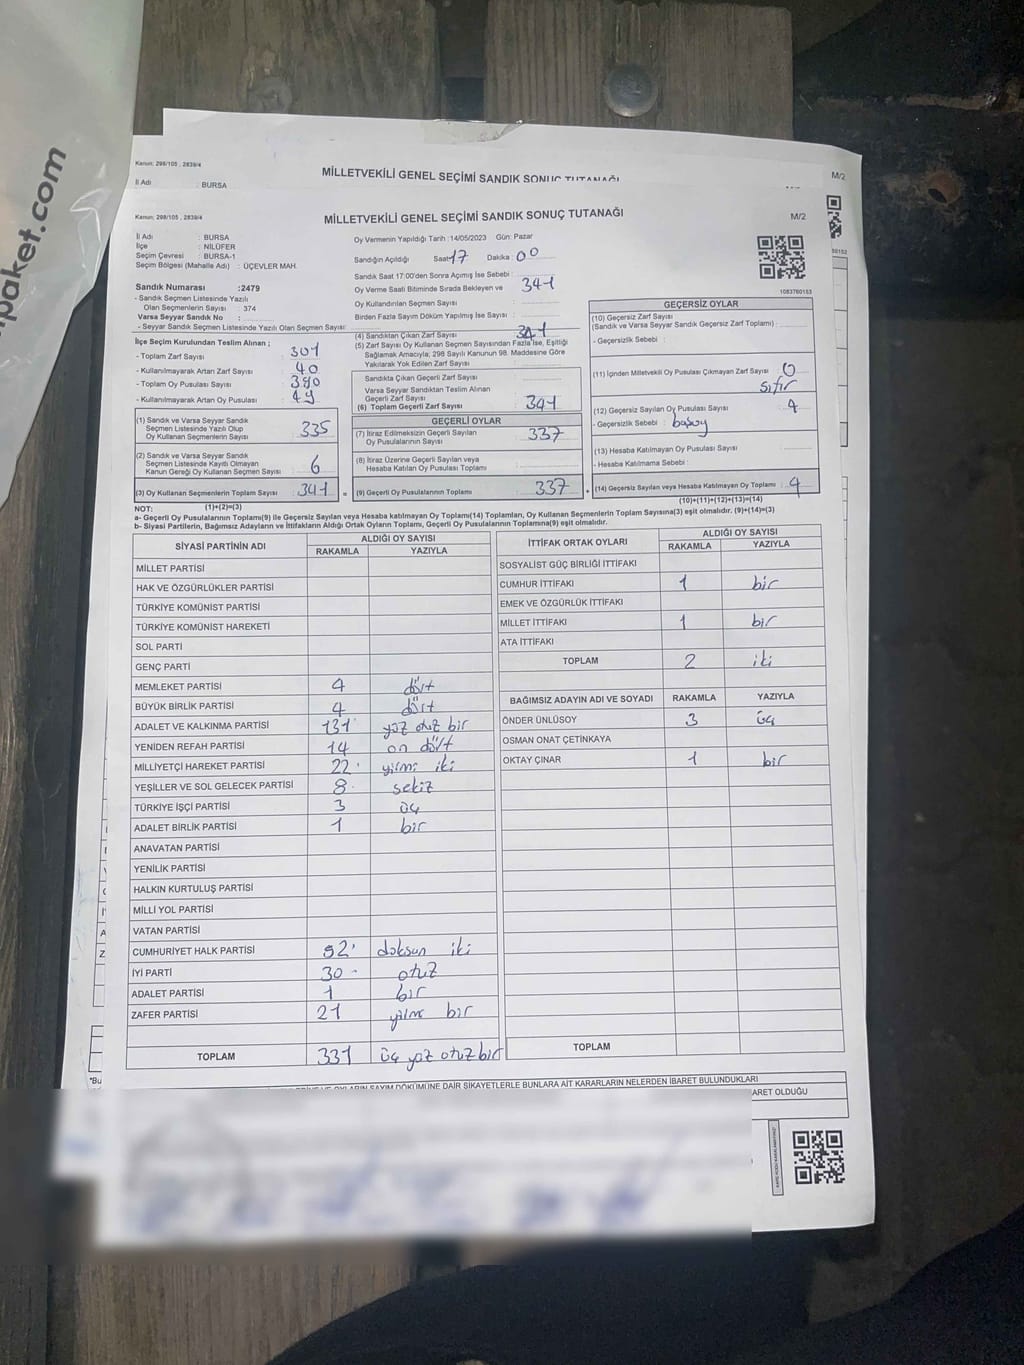 paket.com
Kanun; 298/105 , 2839/4
MİLLETVEKİLİ GENEL SEÇİMİ SANDIK SONUÇ TUTANAĞI
M/2
İl Adı : BURSA
Kanun; 298/105 , 2839/4
MİLLETVEKİLİ GENEL SEÇİMİ SANDIK SONUÇ TUTANAĞI
M/2
İl Adı : BURSA
İlçe : NİLÜFER
Seçim Çevresi : BURSA-1
Seçim Bölgesi (Mahalle Adı) : ÜÇEVLER MAH.
Sandık Numarası :2479
- Sandık Seçmen Listesinde Yazılı
Olan Seçmenlerin Sayısı : 374
Varsa Seyyar Sandık No :
- Seyyar Sandık Seçmen Listesinde Yazılı Olan Seçmen Sayısı:
Oy Vermenin Yapıldığı Tarih :14/05/2023 Gün: Pazar
Sandığın Açıldığı Saat: 17 Dakika: 00
Sandık Saat 17:00'den Sonra Açımış İse Sebebi :
Oy Verme Saati Bitiminde Sırada Bekleyen ve 341
Oy Kullandırılan Seçmen Sayısı :
Birden Fazla Sayım Döküm Yapılmış İse Sayısı :
1083760153
İlçe Seçim Kurulundan Teslim Alınan ;
- Toplam Zarf Sayısı : 301
- Kullanılmayarak Artan Zarf Sayısı : 40
- Toplam Oy Pusulası Sayısı : 390
- Kullanılmayarak Artan Oy Pusulası : 49
(1) Sandık ve Varsa Seyyar Sandık
Seçmen Listesinde Yazılı Olup
Oy Kullanan Seçmenlerin Sayısı : 335
(2) Sandık ve Varsa Seyyar Sandık
Seçmen Listesinde Kayıtlı Olmayan
Kanun Gereği Oy Kullanan Seçmen Sayısı : 6
(3) Oy Kullanan Seçmenlerin Toplam Sayısı : 341
(1)+(2)=(3)
(4) Sandıktan Çıkan Zarf Sayısı 341
(5) Zarf Sayısı Oy Kullanan Seçmen Sayısından Fazla İse, Eşitliği
Sağlamak Amacıyla; 298 Sayılı Kanunun 98. Maddesine Göre
Yakılarak Yok Edilen Zarf Sayısı :
Sandıkta Çıkan Geçerli Zarf Sayısı :
Varsa Seyyar Sandıktan Teslim Alınan
Geçerli Zarf Sayısı :
(6) Toplam Geçerli Zarf Sayısı : 341
GEÇERLİ OYLAR
(7) İtiraz Edilmeksizin Geçerli Sayılan
Oy Pusulalarının Sayısı : 337
(8) İtiraz Üzerine Geçerli Sayılan veya
Hesaba Katılan Oy Pusulası Toplamı :
= (9) Geçerli Oy Pusulalarının Toplamı : 337
GEÇERSİZ OYLAR
(10) Geçersiz Zarf Sayısı
(Sandık ve Varsa Seyyar Sandık Geçersiz Zarf Toplamı) :
- Geçersizlik Sebebi :
(11) İçinden Milletvekili Oy Pusulası Çıkmayan Zarf Sayısı : 0
sıfır
(12) Geçersiz Sayılan Oy Pusulası Sayısı : 4
- Geçersizlik Sebebi :
(13) Hesaba Katılmayan Oy Pusulası Sayısı :
- Hesaba Katılmama Sebebi :
+ (14) Geçersiz Sayılan veya Hesaba Katılmayan Oy Toplamı : 4
(10)+(11)+(12)+(13)=(14)
NOT:
a- Geçerli Oy Pusulalarının Toplamı(9) ile Geçersiz Sayılan veya Hesaba katılmayan Oy Toplamı(14) Toplamları, Oy Kullanan Seçmenlerin Toplam Sayısına(3) eşit olmalıdır. (9)+(14)=(3)
b- Siyasi Partilerin, Bağımsız Adayların ve İttifakların Aldığı Ortak Oyların Toplamı, Geçerli Oy Pusulalarının Toplamına(9) eşit olmalıdır.
SİYASİ PARTİNİN ADI
ALDIĞI OY SAYISI
RAKAMLA YAZIYLA
MİLLET PARTİSİ
HAK VE ÖZGÜRLÜKLER PARTİSİ
TÜRKİYE KOMÜNİST PARTİSİ
TÜRKİYE KOMÜNİST HAREKETİ
SOL PARTİ
GENÇ PARTİ
MEMLEKET PARTİSİ 4 dört
BÜYÜK BİRLİK PARTİSİ 4 dört
ADALET VE KALKINMA PARTİSİ 131 yüz otuz bir
YENİDEN REFAH PARTİSİ 14 on dört
MİLLİYETÇİ HAREKET PARTİSİ 22 yirmi iki
YEŞİLLER VE SOL GELECEK PARTİSİ 8 sekiz
TÜRKİYE İŞÇİ PARTİSİ 3 üç
ADALET BİRLİK PARTİSİ 1 bir
ANAVATAN PARTİSİ
YENİLİK PARTİSİ
HALKIN KURTULUŞ PARTİSİ
MİLLİ YOL PARTİSİ
VATAN PARTİSİ
CUMHURİYET HALK PARTİSİ 92 doksan iki
İYİ PARTİ 30 otuz
ADALET PARTİSİ 1 bir
ZAFER PARTİSİ 21 yirmi bir
TOPLAM 331 üç yüz otuz bir
İTTİFAK ORTAK OYLARI
ALDIĞI OY SAYISI
RAKAMLA YAZIYLA
SOSYALİST GÜÇ BİRLİĞİ İTTİFAKI
CUMHUR İTTİFAKI 1 bir
EMEK VE ÖZGÜRLÜK İTTİFAKI
MİLLET İTTİFAKI 1 bir
ATA İTTİFAKI
TOPLAM 2 iki
BAĞIMSIZ ADAYIN ADI VE SOYADI RAKAMLA YAZIYLA
ÖNDER ÜNLÜSOY 3 üç
OSMAN ONAT ÇETİNKAYA
OKTAY ÇINAR 1 bir
TOPLAM
OYLARIN SAYIM DÖKÜMÜNE DAİR ŞİKAYETLERLE BUNLARA AİT KARARLARIN NELERDEN İBARET BULUNDUKLARI
ARET OLDUĞU